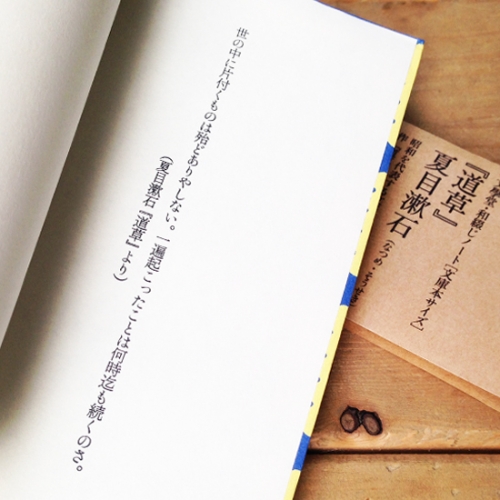 世の中に片付くものは殆どありやしない。一遍起こったことは何時迄も続くのさ。
(夏目漱石『道草』より)
『道草』
夏目漱石(なつめ・そうせき)
和綴じノート[文庫本サイズ]
昭和を代表する